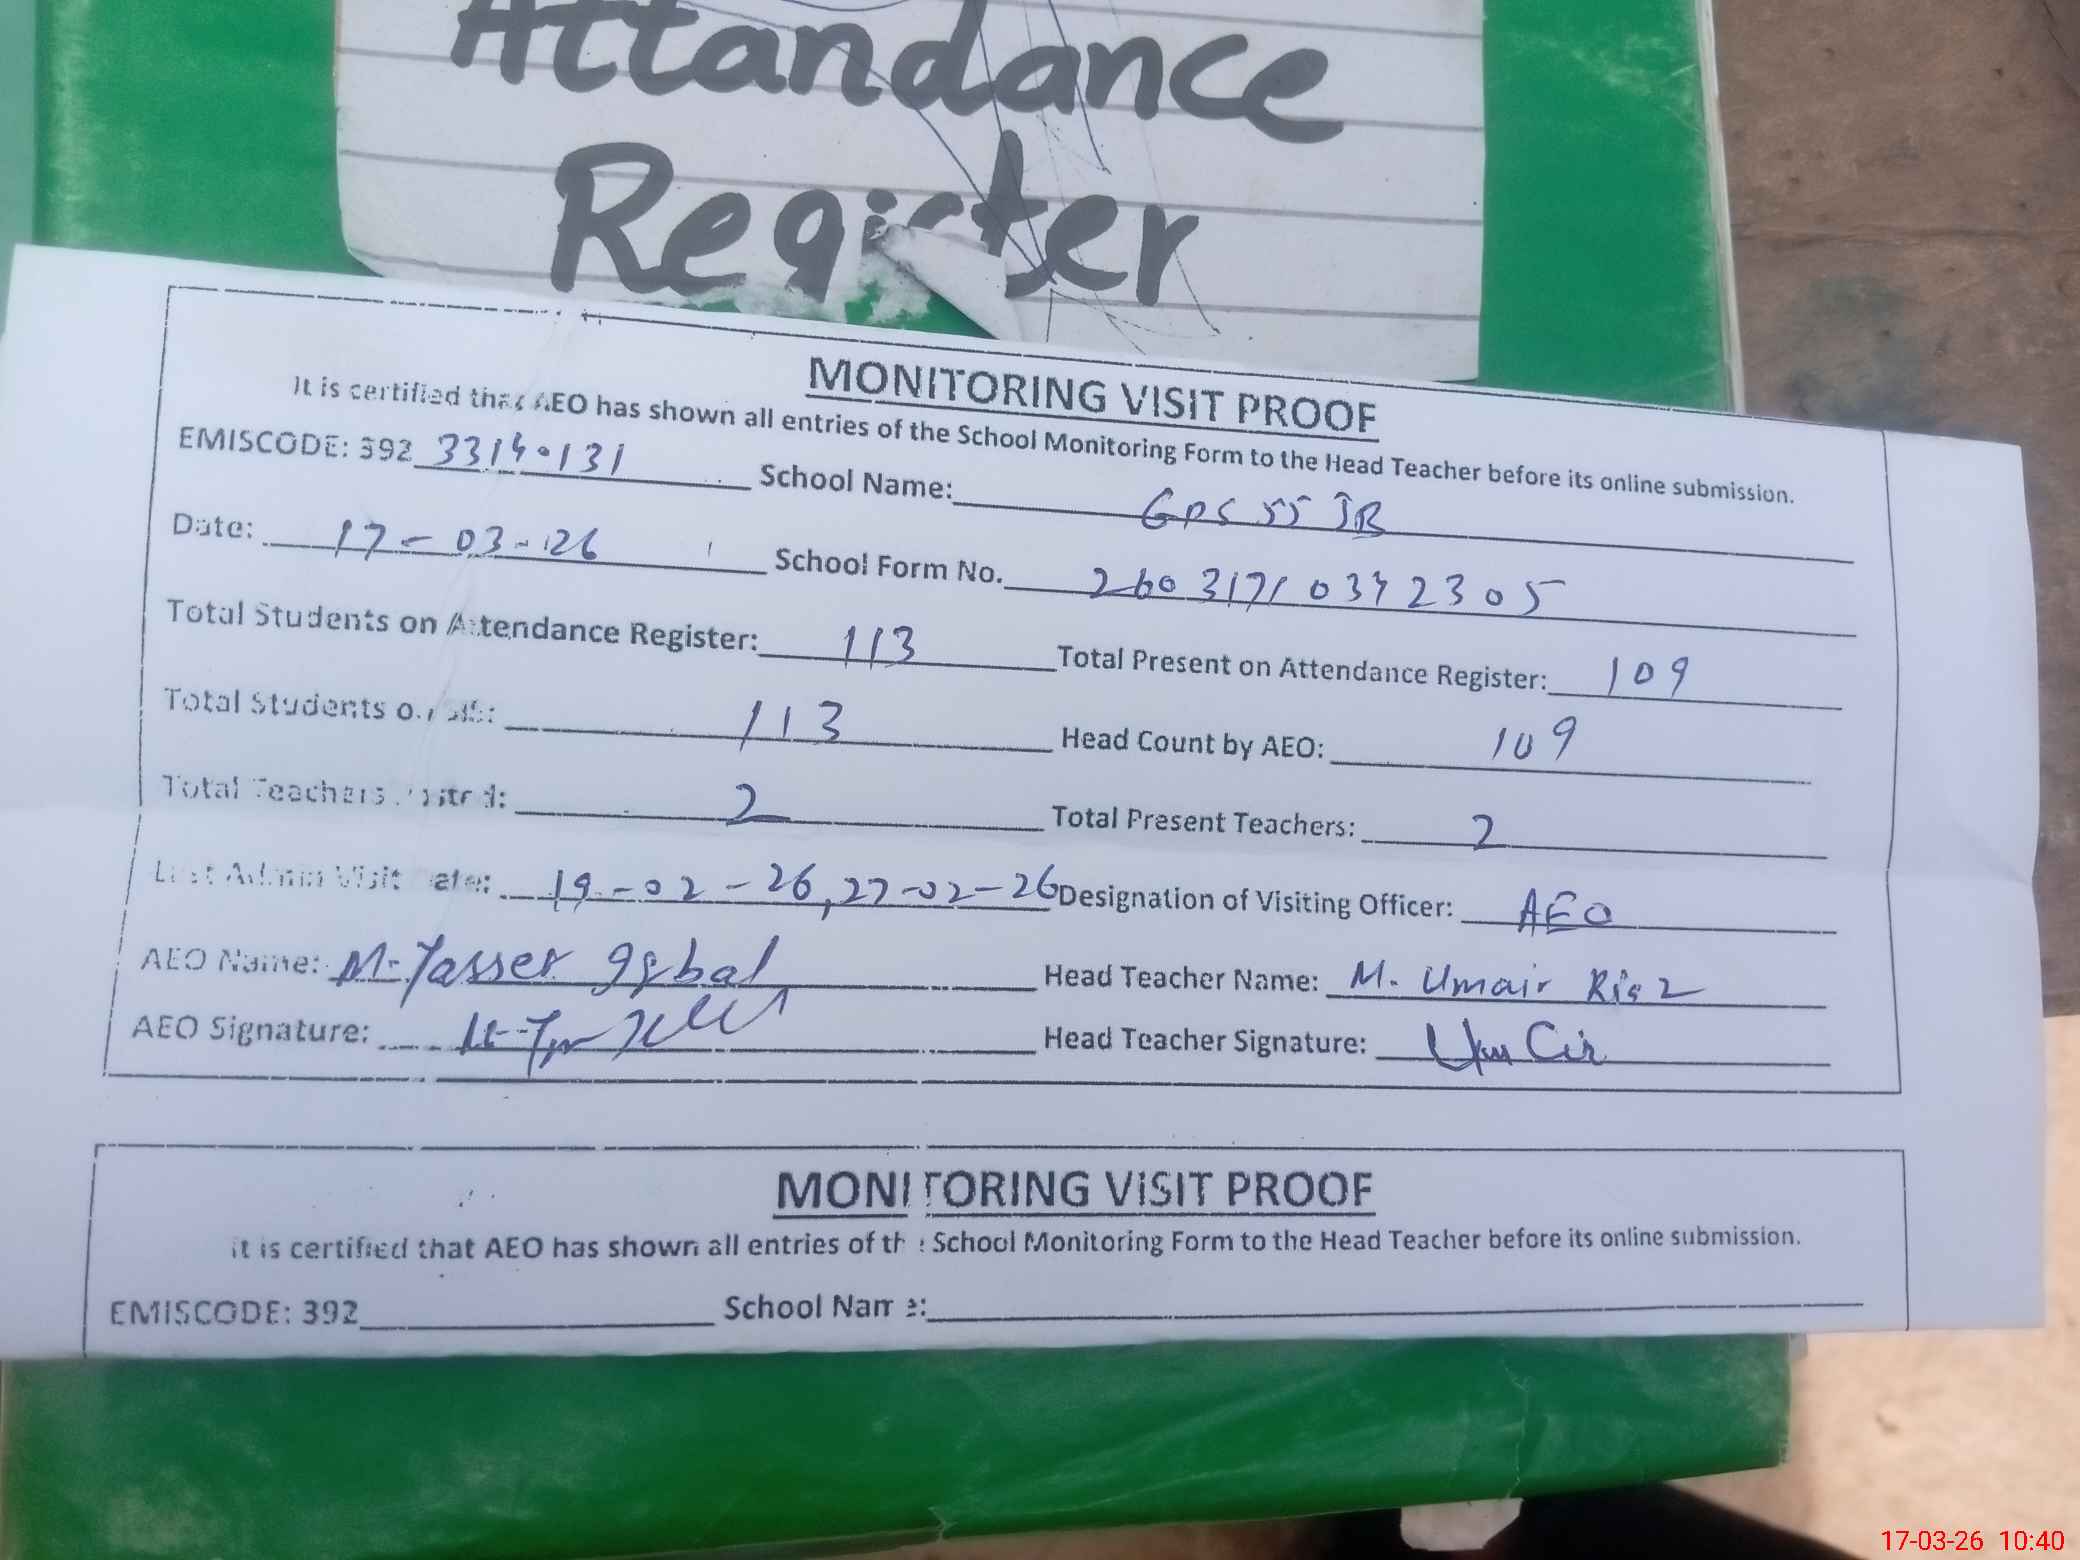 Attandance
Register
MONITORING VISIT PROOF
It is certified that AEO has shown all entries of the School Monitoring Form to the Head Teacher before its online submission.
EMISCODE: 392 33140131 School Name: GPS 55 JB
Date: 17-03-26 School Form No. 26031710342305
Total Students on Attendance Register: 113 Total Present on Attendance Register: 109
Total Students on SIS: 113 Head Count by AEO: 109
Total Teachers Posted: 2 Total Present Teachers: 2
Last Admin Visit Date: 19-02-26, 27-02-26 Designation of Visiting Officer: AEO
AEO Name: M. Yasser Iqbal Head Teacher Name: M. Umair Riaz
AEO Signature: Head Teacher Signature:
MONITORING VISIT PROOF
it is certified that AEO has shown all entries of the School Monitoring Form to the Head Teacher before its online submission.
EMISCODE: 392 School Name:
17-03-26 10:40